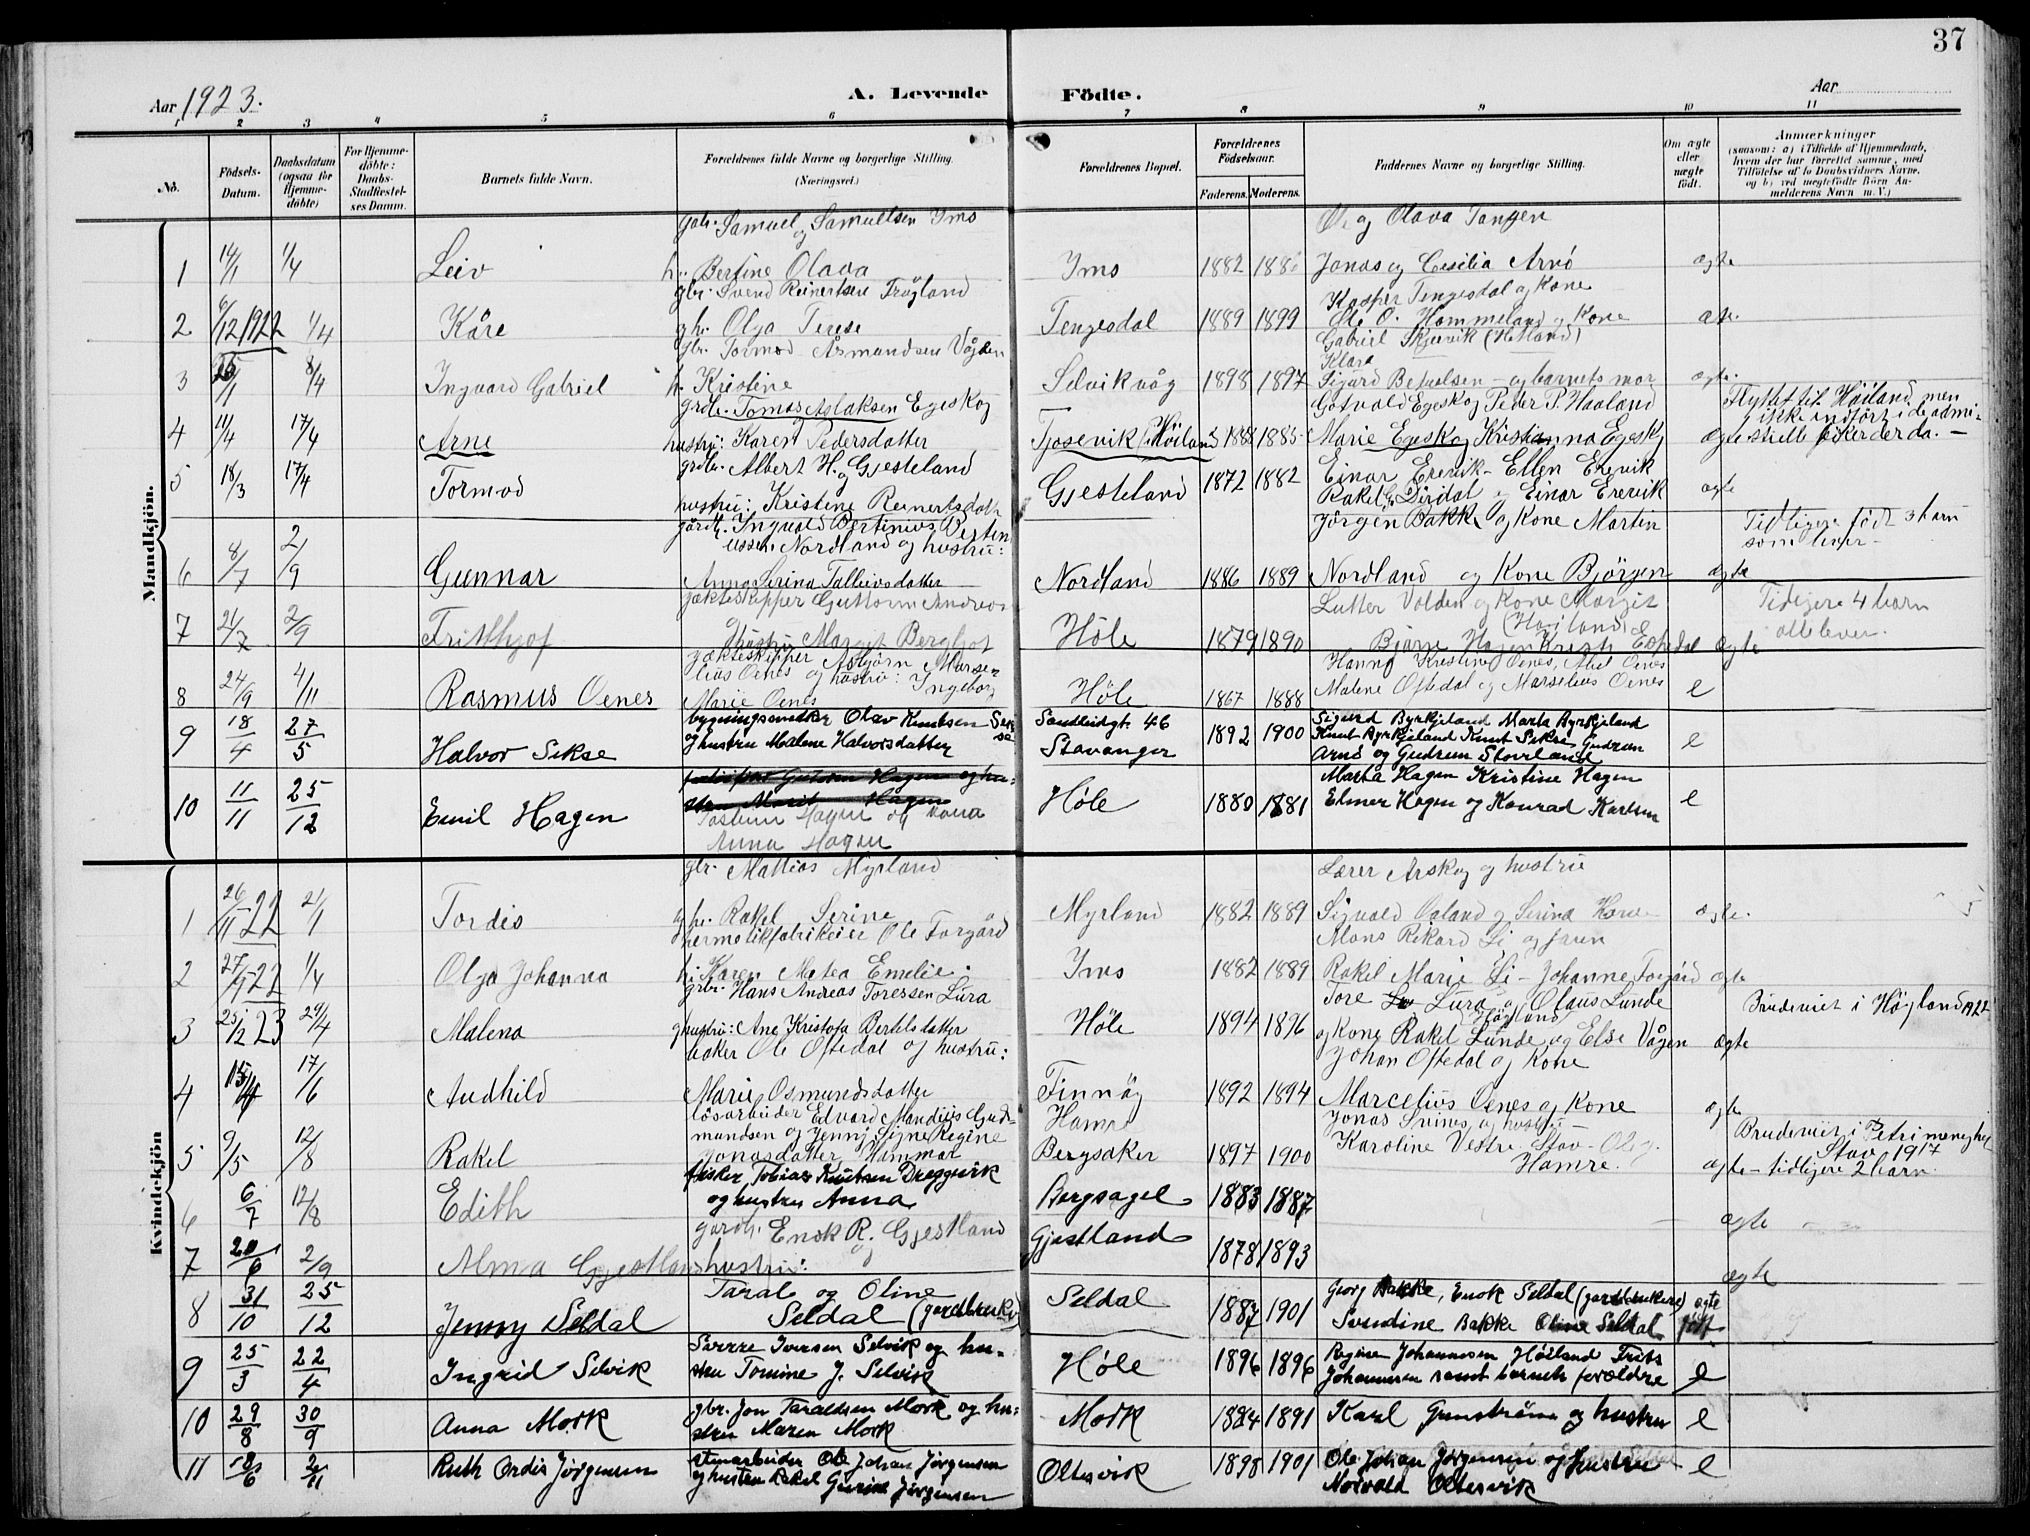 37
Aar 1923.
A. Levende
Födte.
Aar
1 2 3 4 5 6 7 8 9 10 11
No.
Födsels-Datum.
Daabsdatum (ogsaa for Hjemme-döbte)
For Hjemme-döbte: Daabs-Stadfæstel-ses Datum.
Barnets fulde Navn.
Forældrenes fulde Navne og borgerlige Stilling.
(Næringsvei.)
Forældrenes Bopæl.
Forældrenes Födselsaar.
Faderens. Moderens.
Faddernes Navne og borgerlige Stilling.
Om ægte eller uægte födt.
Anmærkninger
(saasom: a) i Tilfælde af Hjemmedaab,
hvem der har forrettet samme, med
Tilföielse af to Daabsvidners Navne,
og b) ved uægtefödte Börn An-
melderens Navn m. V.)
Mandkjön.
gbr. Samuel Samuelsen Ims
og
Ole og Olava Tangen
1 14/1 1/4 Leiv h.. Bertine Olava Ims 1882 Jonas og Cesilia Arnö ægte
gbr. Svend Reinertsen Frøgland
Kasper Tengesdal og Kone
2 6/12 1922 1/4 Kåre g h. Olga Terese Tengesdal 1889 1899 Ole O. Hommeland og Kone
gbr. Tormod Åsmundsen Vågen
Gabriel Skjørvik (Hetland)
Klara
3 8/4 Ingvard Gabriel h. Kristine Selvikvåg 1898 1897 Sigurd Betuelsen - og barnets mor ægte.
grdb. Tomas Aslaksen Egeskog
Gotvald Egeskog Peder P. Haaland
Flyttet til Høiland, men
ikke indført i de admi-
4 11/4 17/4 Arne hustru: Karen Pedersdatter Tjosevik i Høiland 1888 1885 Marie Egeskog Kristianna Egeskog ægte
grdb. Albert H. Gjesteland
Einar Erevik - Ellen Erevik
5 18/3 17/4 Tormod og Gjesteland 1872 1882 Rakel Dirdal og Einar Erevik ægte
hustru: Kristine Reinertsdatter
gårdb. Ingvald Bertinius Bertin
Jörgen Bakke og Kone Martin
Tidligere født 3 barn
som lever -
ussen Nordland og hustru:
6 8/7 2/9 Gunnar Anna Serina Talleivsdatter Nordland 1886 1889 Nordland og Kone Bjørgen ægte
jækteskipper Guttorm Andreas
Lutter Volden og Kone Margit
Tidligere 4 barn
alle lever.
(Høiland)
7 21/7 2/9 Frithjof hustru Margit Berghof Høle 1879 1890 Bjarne Hagen Espedal ægte
jækteskipper Asbjørn Marse-
lius Oenes og hustru: Ingeborg
Hanna Kristine Oenes, Abel Oenes
8 24/9 4/11 Rasmus Oenes Marie Oenes Høle 1867 1888 Malene Oftedal og Marselius Oenes e
bygningssnedker Olav Knutsen Sek
se
Sandeidgt. 46
Sigurd Byrkjeland Marta Byrkjeland
9 18/4 27/5 Halvor Sekse og hustru Malene Halvorsdatter Stavanger 1892 1900 Knut Byrkjeland Knut Sekse Gudrun e
Arnø og Gudrun Stovrland
Marta Hagen Kristine Hagen
10 11/11 25/12 Emil Hagen Høle 1880 1881 Elmer Hagen og Konrad Karlsen e
Jostein Hagen og kona
Anna Hagen
Kvindekjön
gbr. Mattias Myrland
Lærer Arskog og hustru
1 26/11 22 21/1 Tordis g h. Rakel Serine Myrland 1882 1889 Sigvald Oaland og Serina ægte.
hermetikfabrikeier Ole Torgård
Mons Rikard Li og
2 27/9 22 1/4 Olga Johanna h: Karen Matea Emelie. Ims 1882 1889 Rakel Marie Li - Johanne Torgård ægte
grbr. Hans Andreas Toresen Lura
Tore Lura og Olaus Lunde
Brudeviet i Høyland 1922
(Høyland)
3 25/2 23 29/4 Malena g hustru: Ane Kristofa Bertelsdatter Høle 1894 1896 og Kone Rakel Lunde og Else Vågen ægte
baker Ole Oftedal og hustru:
Johan Oftedal og Kone
4 17/6 Audhild Marie Osmundsdatter Finnöy 1892 1894 Marcelius Oenes og Kone ægte
løsarbeider Edvard Mandius Gud-
mundsen og Jenny Signe Regine
Hamre
Jonas Svines og hustru -
Brudeviet i Petri menighet
Stav - 1917
5 9/5 12/8 Rakel Jonasdatter Bergsaker 1897 1900 Karoline Vestre Stav -
Hamre. ægte - tidligere 2 barn.
fisker Tobias Knutsen Dreggevik
6 6/7 12/8 Edith og hustru Anna Bergsagel 1883 1887 ægte
gardb. Enok R. Gjestland
og
7 20/6 2/9 Alma Gjestland hustru: Gjestland 1878 1893 ægte
Taral og Oline
Georg Bakke, Enok Seldal (gardbrukere) ægte
8 31/10 25/12 Jenny Seldal Seldal (gardbruker) Seldal 1887 1901 Svendine Bakke Oline Seldal født
Sverre Iversen Selvik og hu-
Regine Johannesen Høiland Frits
9 25/3 22/4 Ingrid Selvik stru Tomine J. Selvik Høle 1896 1896 Johannesen samt barnets forældre e
gbr. Jon Taraldsen Mørk og hu-
10 29/8 30/9 Anna Mørk stru Maren Mørk Mørk 1884 1891 Karl Grønstrøm og hustru e
stenarbeider Ole Johan Jørgensen
Ole Johan Jørgensen og hustru e
11 2/11 Ruth Ordis Jørgensen og hustru Rakel Gurine Jørgensen Oltesvik 1898 1901 Norvald Oltesvik